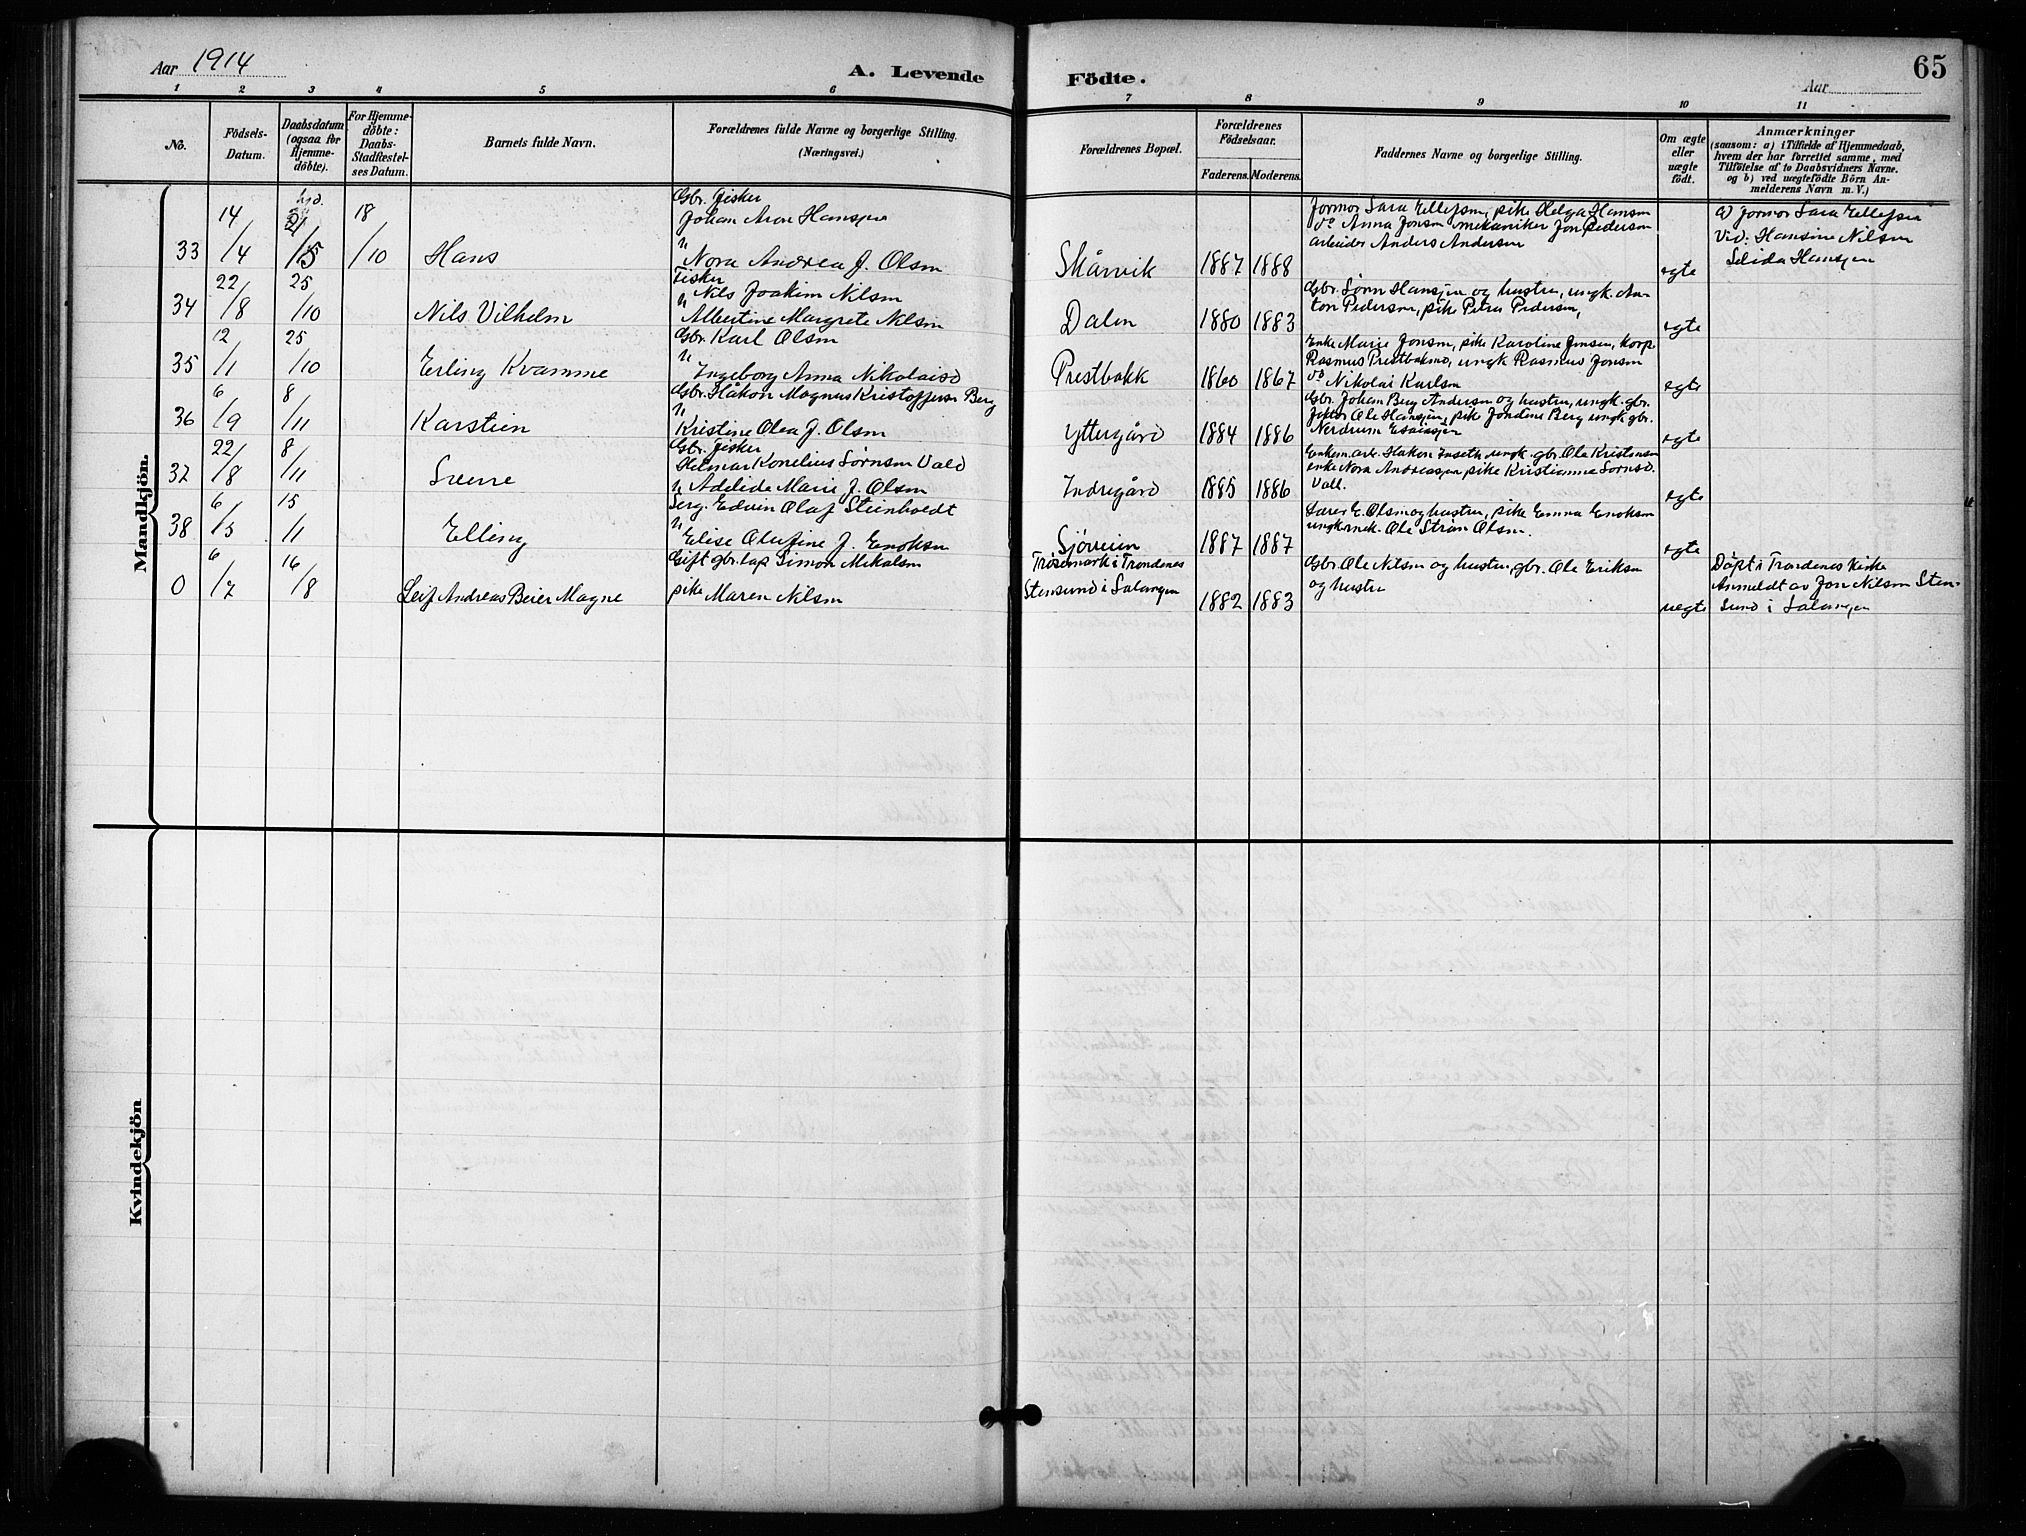 Aar 1914
A. Levende
Födte.
Aar
65
1 2 3 4 5 6 7 8 9 10 11
No.
Födsels-
Datum.
Daabsdatum
(ogsaa for
Hjemme-
döbte).
For Hjemme-
döbte:
Daabs-
Stadfæstel-
ses Datum.
Barnets fulde Navn.
Forældrenes fulde Navne og borgerlige Stilling.
(Næringsvei.)
Forældrenes Bopæl.
Forældrenes
Födselsaar.
Faderens. Moderens.
Faddernes Navne og borgerlige Stilling.
Om ægte
eller
uægte
födt.
Anmærkninger
(saasom: a) i Tilfælde af Hjemmedaab,
hvem der har forrettet samme, med
Tilföielse af to Daabsvidners Navne.
og b) ved uægtefödte Börn An-
melderens Navn m. V.)
Mandkjön.
33 14/4 hjd. 21/5 18/10 Hans
Gbr. fisker
Johan Aron Hansen
h Nora Andrea f. Olsen
Skårvik 1887 1888
formor Sara Ellefsen, pike Helga Hansen
do Anna Jonsen mekaniker Jon Pedersen
arbeider Anders Andersen
egte
a) formor Sara Ellefsen
Vid: Hansine Nilsen
Selida Hansen
34 22/8 25/10 Nils Vilhelm
Fisker
Nils Joakim Nilsen
h Albertine Margrete Nilsen
Dalen 1880 1883
Gbr. Sørn Hansen og hustru, ungk. An-
ton Pedersen, pike Petra Pedersen,
egte
35 12/1 25/10 Erling Kvamme
Gbr. Karl Olsen
h Ingeborg Anna Nikolaisd
Prestbakk 1860 1867
Enke Marie Jonsen, pike Karoline Jensen, korp.
Rasmus Prestbakmo, ungk Rasmus Jonsen
do Nikolai Karlsen
egte
36 6/9 8/11 Karstein
Gbr. Håkon Magnus Kristoffersen Berg
h Kristine Olea f. Olsen
Yttergård 1884 1886
Gbr. Johan Berg Andersen og hustru, ungk. gbr.
fisker Ole Hansen, pike Jordine Berg ungk gbr.
Nerdrum Esaiassen
egte
37 22/8 8/11 Sverre
Gbr. fisker
Helmar Kornelius Sørnsen Vald
h Adelida Marie f. Olsen
Indregård 1885 1886
Enkem. arb. Håkon Inseth ungk. gbr. Ole Kristensen
enke Nora Andreassen pike Kristianna Sørnsd.
Vall.
egte
38 6/5 15/11 Elling
Serg. Edvin Olaf Steinholdt
h Elise Olufine f. Enoksen
Sjøveien 1887 1887
Lærer E. Olsen og hustru, pike Emma Enoksen
ungk. Ole Strøm Olsen.
egte
0 6/7 16/8 Leif Andreas Beier Magne
Gift gbr. lap Simon Mikalsen
pike Maren Nilsen
Trøsemark i Trondenes
Stensund i Salangen 1882 1883
Gbr. Ole Nilsen og hustru, gbr. Ole Eriksen
og hustru
uegte
Døpt i Trondenes kirke
Anmeldt av Jon Nilsen Sten-
sund i Salangen
Kvindekjön